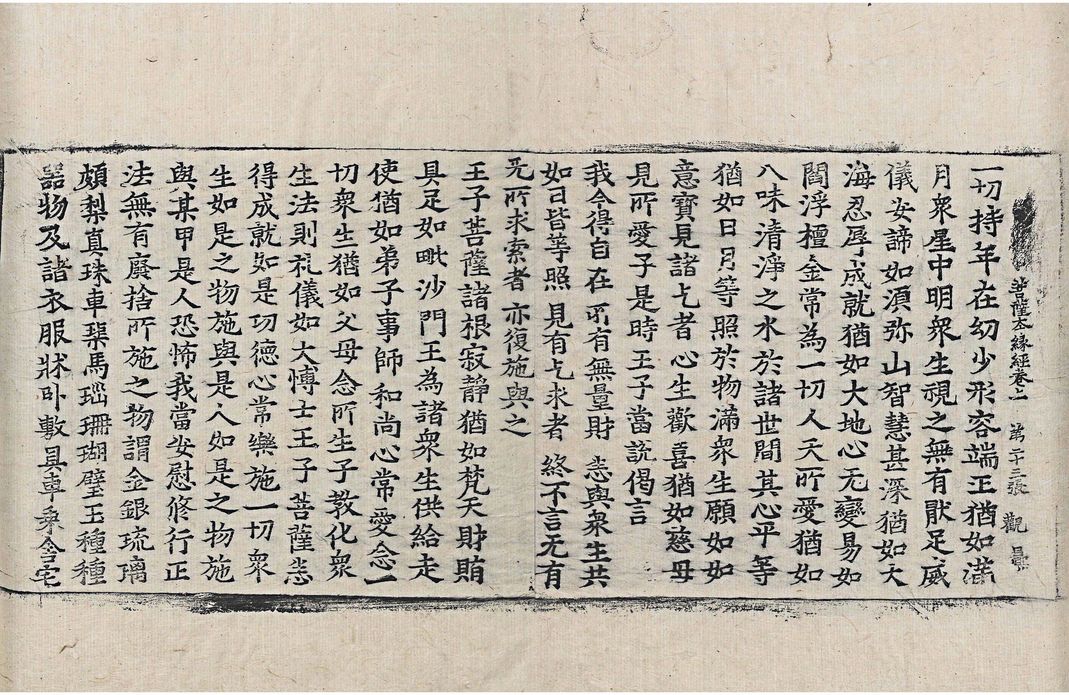 菩薩夲緣經卷上 第二十三張 觀
一切持年在幼少形容端正猶如滿
月衆星中明衆生視之無有猒足威
儀安諦如湏弥山智慧甚深猶如大
海忍辱成就猶如大地心无變易如
閻浮檀金常為一切人天所愛猶如
八味清淨之水於諸世間其心平等
猶如日月等照於物滿衆生願如如
意寶見諸乞者心生歡喜猶如慈母
見所愛子是時王子當說偈言
我今得自在 所有無量財 悉與衆生共
如日皆等照 見有乞求者 終不言无有
无所求索者 亦復施與之
王子菩薩諸根寂静猶如梵天財賄
具足如毗沙門王為諸衆生供給走
使猶如弟子事師和尚心常愛念一
切衆生猶如父母念所生子教化衆
生法則礼儀如大愽士王子菩薩悉
得成就如是功德心常樂施一切衆
生如是之物施與是人如是之物施
與某甲是人恐怖我當安慰脩行正
法無有廢捨所施之物謂金銀琉璃
頗梨真珠車璖馬瑙珊瑚璧玉種種
器物及諸衣服牀卧敷具車乗舍宅